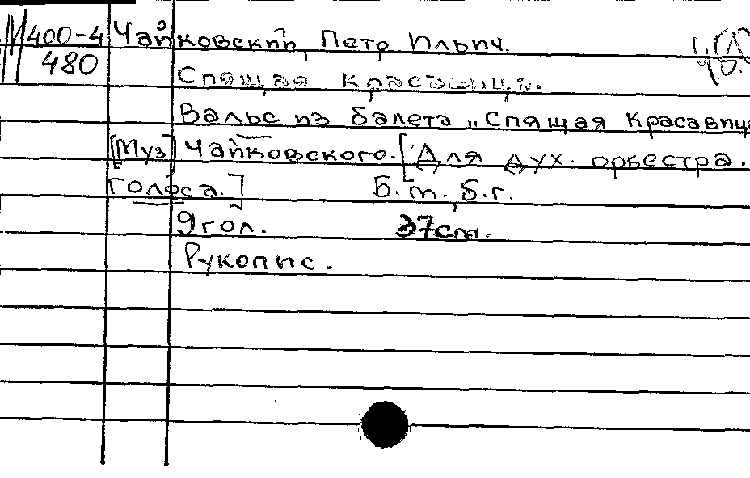 400-4 Чайковский, Петр Ильич.
480 Спящая красавица.
Вальс из балета „Спящая Красавица
[Муз] Чайковского. [Для дух. оркестра.
Голоса.] Б.м., Б.г.
9 гол. 37 см.
Рукопис.